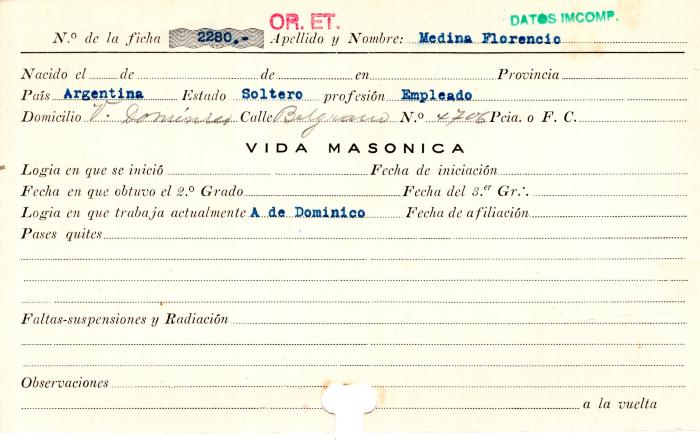 OR. ET.
DATOS IMCOMP.
N.º de la ficha 2280.- Apellido y Nombre: Medina Florencio
Nacido el de de en Provincia
País Argentina Estado Soltero profesión Empleado
Domicilio V. Domínico Calle Belgrano N.º 4706 Pcia. o F. C.
VIDA MASONICA
Logia en que se inició Fecha de iniciación
Fecha en que obtuvo el 2.º Grado Fecha del 3.er Gr∴
Logia en que trabaja actualmente A de Dominico Fecha de afiliación
Pases quites
Faltas-suspensiones y Radiación
Observaciones
a la vuelta